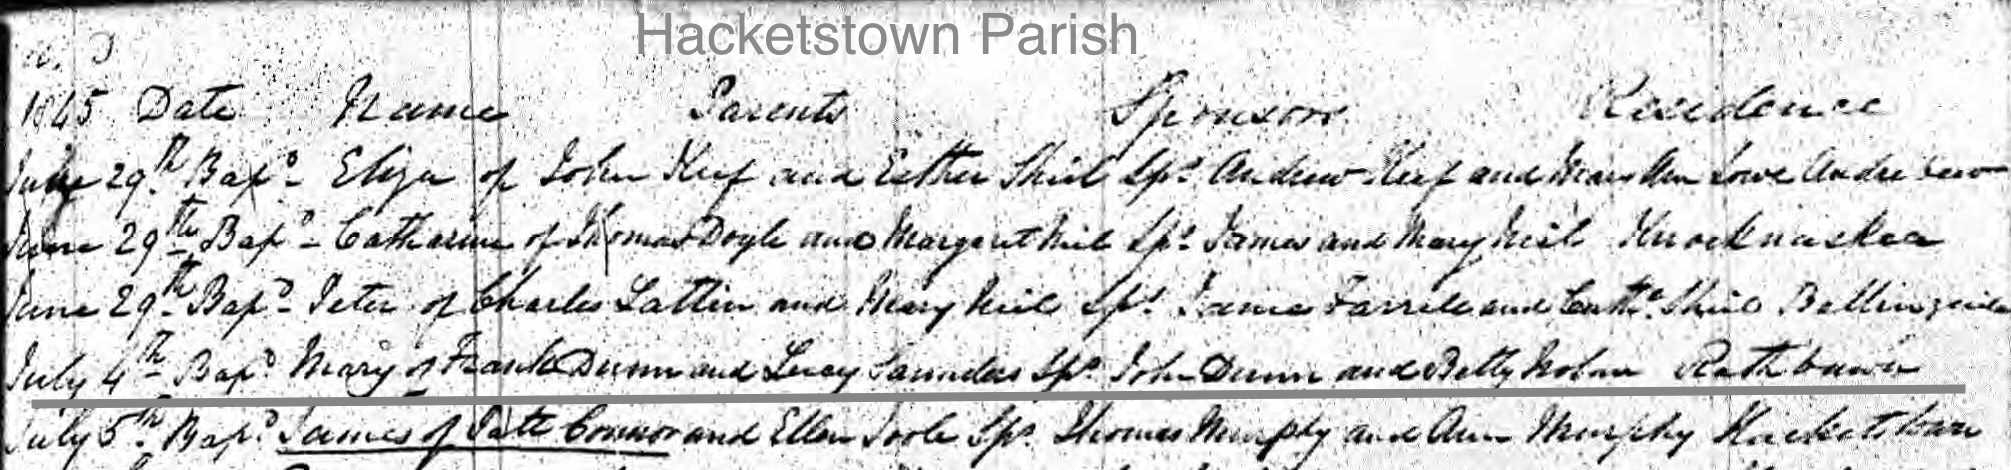 Hacketstown Parish
1845 Date Name Parents Sponsors Residence
29th Bapd Eliza of John Keef and Esther Shiel Sps Andrew Keef and Mary Ann Lowe
June 29th Bapd Catharine of Thomas Doyle and Margaret Neil Sps James and Mary Neil Knocknaskea
June 29th Bapd Peter of Charles Lattin and Mary Neil Sps James Farrell and Cathe Shiel
July 4th Bapd Mary of Frank Dunn and Lucy Saunders Sps John Dunn and Betty Nolan Rathbawn
July 5th Bapd James of Patt Connor and Ellen Toole Sps Thomas Murphy and Ann Murphy Hacketstown